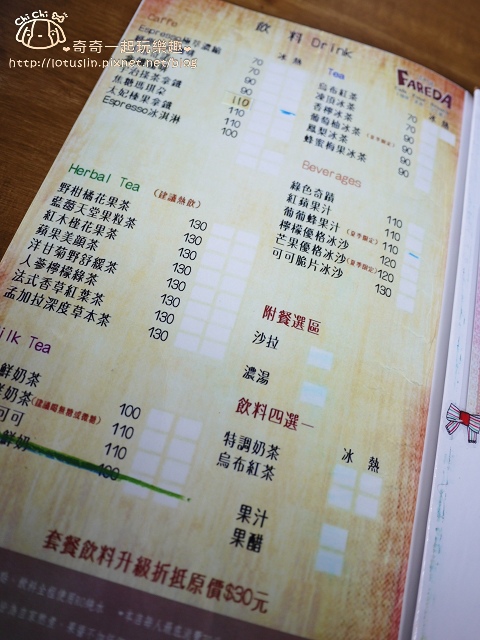 Chi Chi Dei
❤奇奇一起玩樂趣❤
http://lotuslin.pixnet.net/blog
飲 料 Drink
FAREDA
冰 熱
70
70
90
90
110
110
100
焦糖瑪琪朵
太妃榛果拿鐵
Espresso冰淇淋
Tea
冰 熱
烏布紅茶
凍頂冰茶
香檸冰茶
葡萄柚冰茶
鳳梨冰茶
蜂蜜梅果冰茶
70
70
90
90
90
Herbal Tea (建議熱飲)
野柑橘花果茶 130
藍莓天堂果粒茶 130
紅木槿花果茶 130
蘋果美顏茶 130
洋甘菊野舒緩茶 130
人蔘檸檬綠茶 130
法式香草紅葉茶 130
孟加拉深度草本茶 130
Beverages
綠色奇蹟 110
紅蘋果汁 110
葡葡蜂果汁(夏季限定) 110
檸檬優格冰沙 120
芒果優格冰沙(夏季限定) 120
可可脆片冰沙 130
ilk Tea
鮮奶茶 100
鮮奶茶 110
可可 110
鮮奶 100
附餐選區
沙拉
濃湯
飲料四選一
冰 熱
特調奶茶
烏布紅茶
果汁
果醋
套餐飲料升級折抵原價$30元